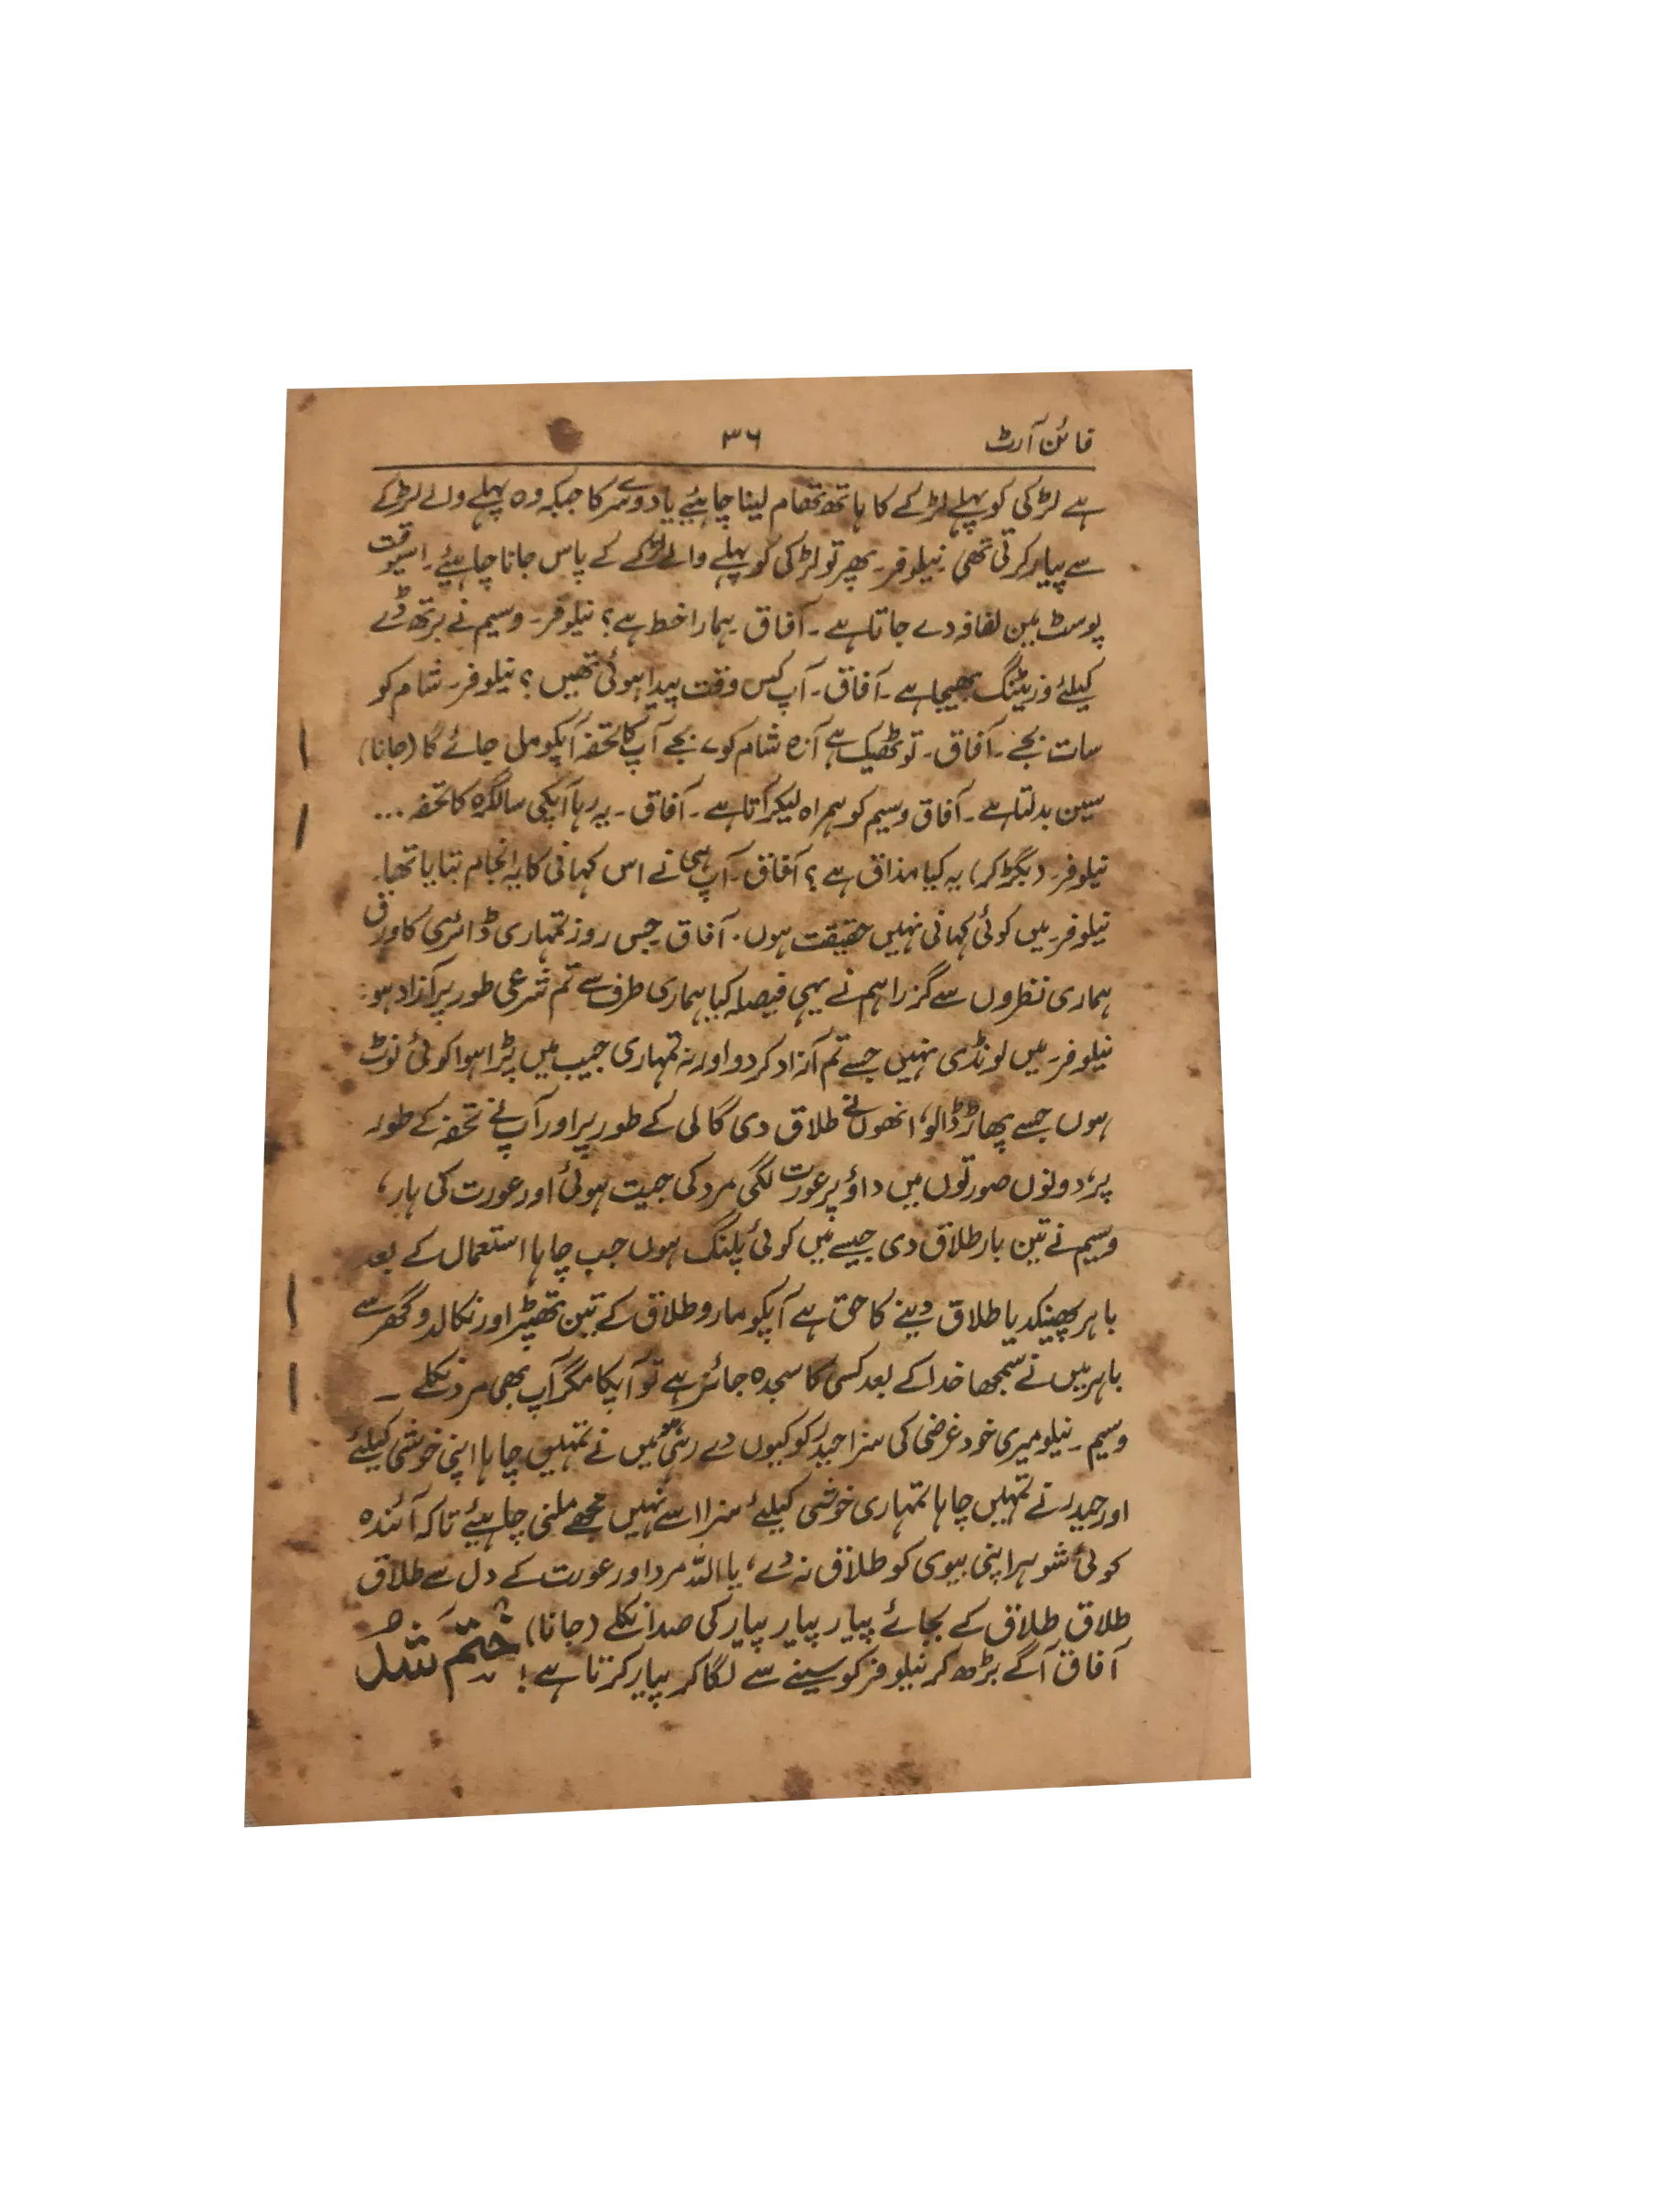 فائن آرٹ
۳۶
ہے لڑکی کو پہلے لڑکے کا ہاتھ تھام لینا چاہئیے یا دوسرے کا جبکہ وہ پہلے والے لڑکے
سے پیار کرتی تھی۔ نیلوفر۔ پھر تو لڑکی کو پہلے والے لڑکے کے پاس جانا چاہئیے۔ اسیوقت
پوسٹ مین لفافہ دے جاتا ہے۔ آفاق۔ ہمارا خط ہے؟ نیلوفر۔ وسیم نے برتھ ڈے
کیلئے وزیٹنگ بھیجا ہے۔ آفاق۔ آپ کس وقت پیدا ہوئی تھیں؟ نیلوفر۔ شام کو
سات بجے۔ آفاق۔ تو ٹھیک ہے آزہ شام کو ۷ بجے آپ کا تحفہ آپکو مل جائے گا (جانا)
سین بدلتا ہے۔ آفاق وسیم کو ہمراہ لیکر آتا ہے۔ آفاق۔ یہ رہا آپکی سالگرہ کا تحفہ ...
نیلوفر۔ (بگڑ کر) یہ کیا مذاق ہے؟ آفاق۔ آپ ہی نے اس کہانی کا یہ انجام بتایا تھا۔
نیلوفر۔ میں کوئی کہانی نہیں حقیقت ہوں۔ آفاق۔ جس روز تمہاری ڈائری کا ورق
ہماری نظروں سے گزرا ہم نے یہی فیصلہ کیا ہماری طرف سے تم شرعی طور پر آزاد ہو۔
نیلوفر۔ میں لونڈی نہیں جسے تم آزاد کر دو اور نہ تمہاری جیب میں پڑا ہوا کوئی نوٹ
ہوں جسے پھاڑ ڈالو، انھوں نے طلاق دی گالی کے طور پر اور آپ نے تحفہ کے طور
پر، دونوں صورتوں میں داؤ پر عورت لگی مرد کی جیت ہوئی اور عورت کی ہار،
وسیم نے تین بار طلاق دی جیسے میں کوئی پلنگ ہوں جب چاہا استعمال کے بعد
باہر پھینکدیا طلاق دینے کا حق ہے آپکو مارو طلاق کے تین تھپڑ اور نکالدو گھر سے
باہر میں نے سمجھا خدا کے بعد کسی کا سجدہ جائز ہے تو آپکا مگر آپ بھی مرد نکلے ۔
وسیم۔ نیلو میری خود غرضی کی سزا حیدر کو کیوں دے رہی ہو میں نے تمہیں چاہا اپنی خوشی کیلئے
اور حیدر نے تمہیں چاہا تمہاری خوشی کیلئے سزا اسے نہیں مجھے ملنی چاہئیے تاکہ آئندہ
کوئی شوہر اپنی بیوی کو طلاق نہ دے، یا اللہ مرد اور عورت کے دل سے طلاق
طلاق طلاق کے بجائے پیار پیار پیار کی صدا نکلے (جانا)
آفاق آگے بڑھ کر نیلوفر کو سینے سے لگا کر پیار کرتا ہے! ختم شد